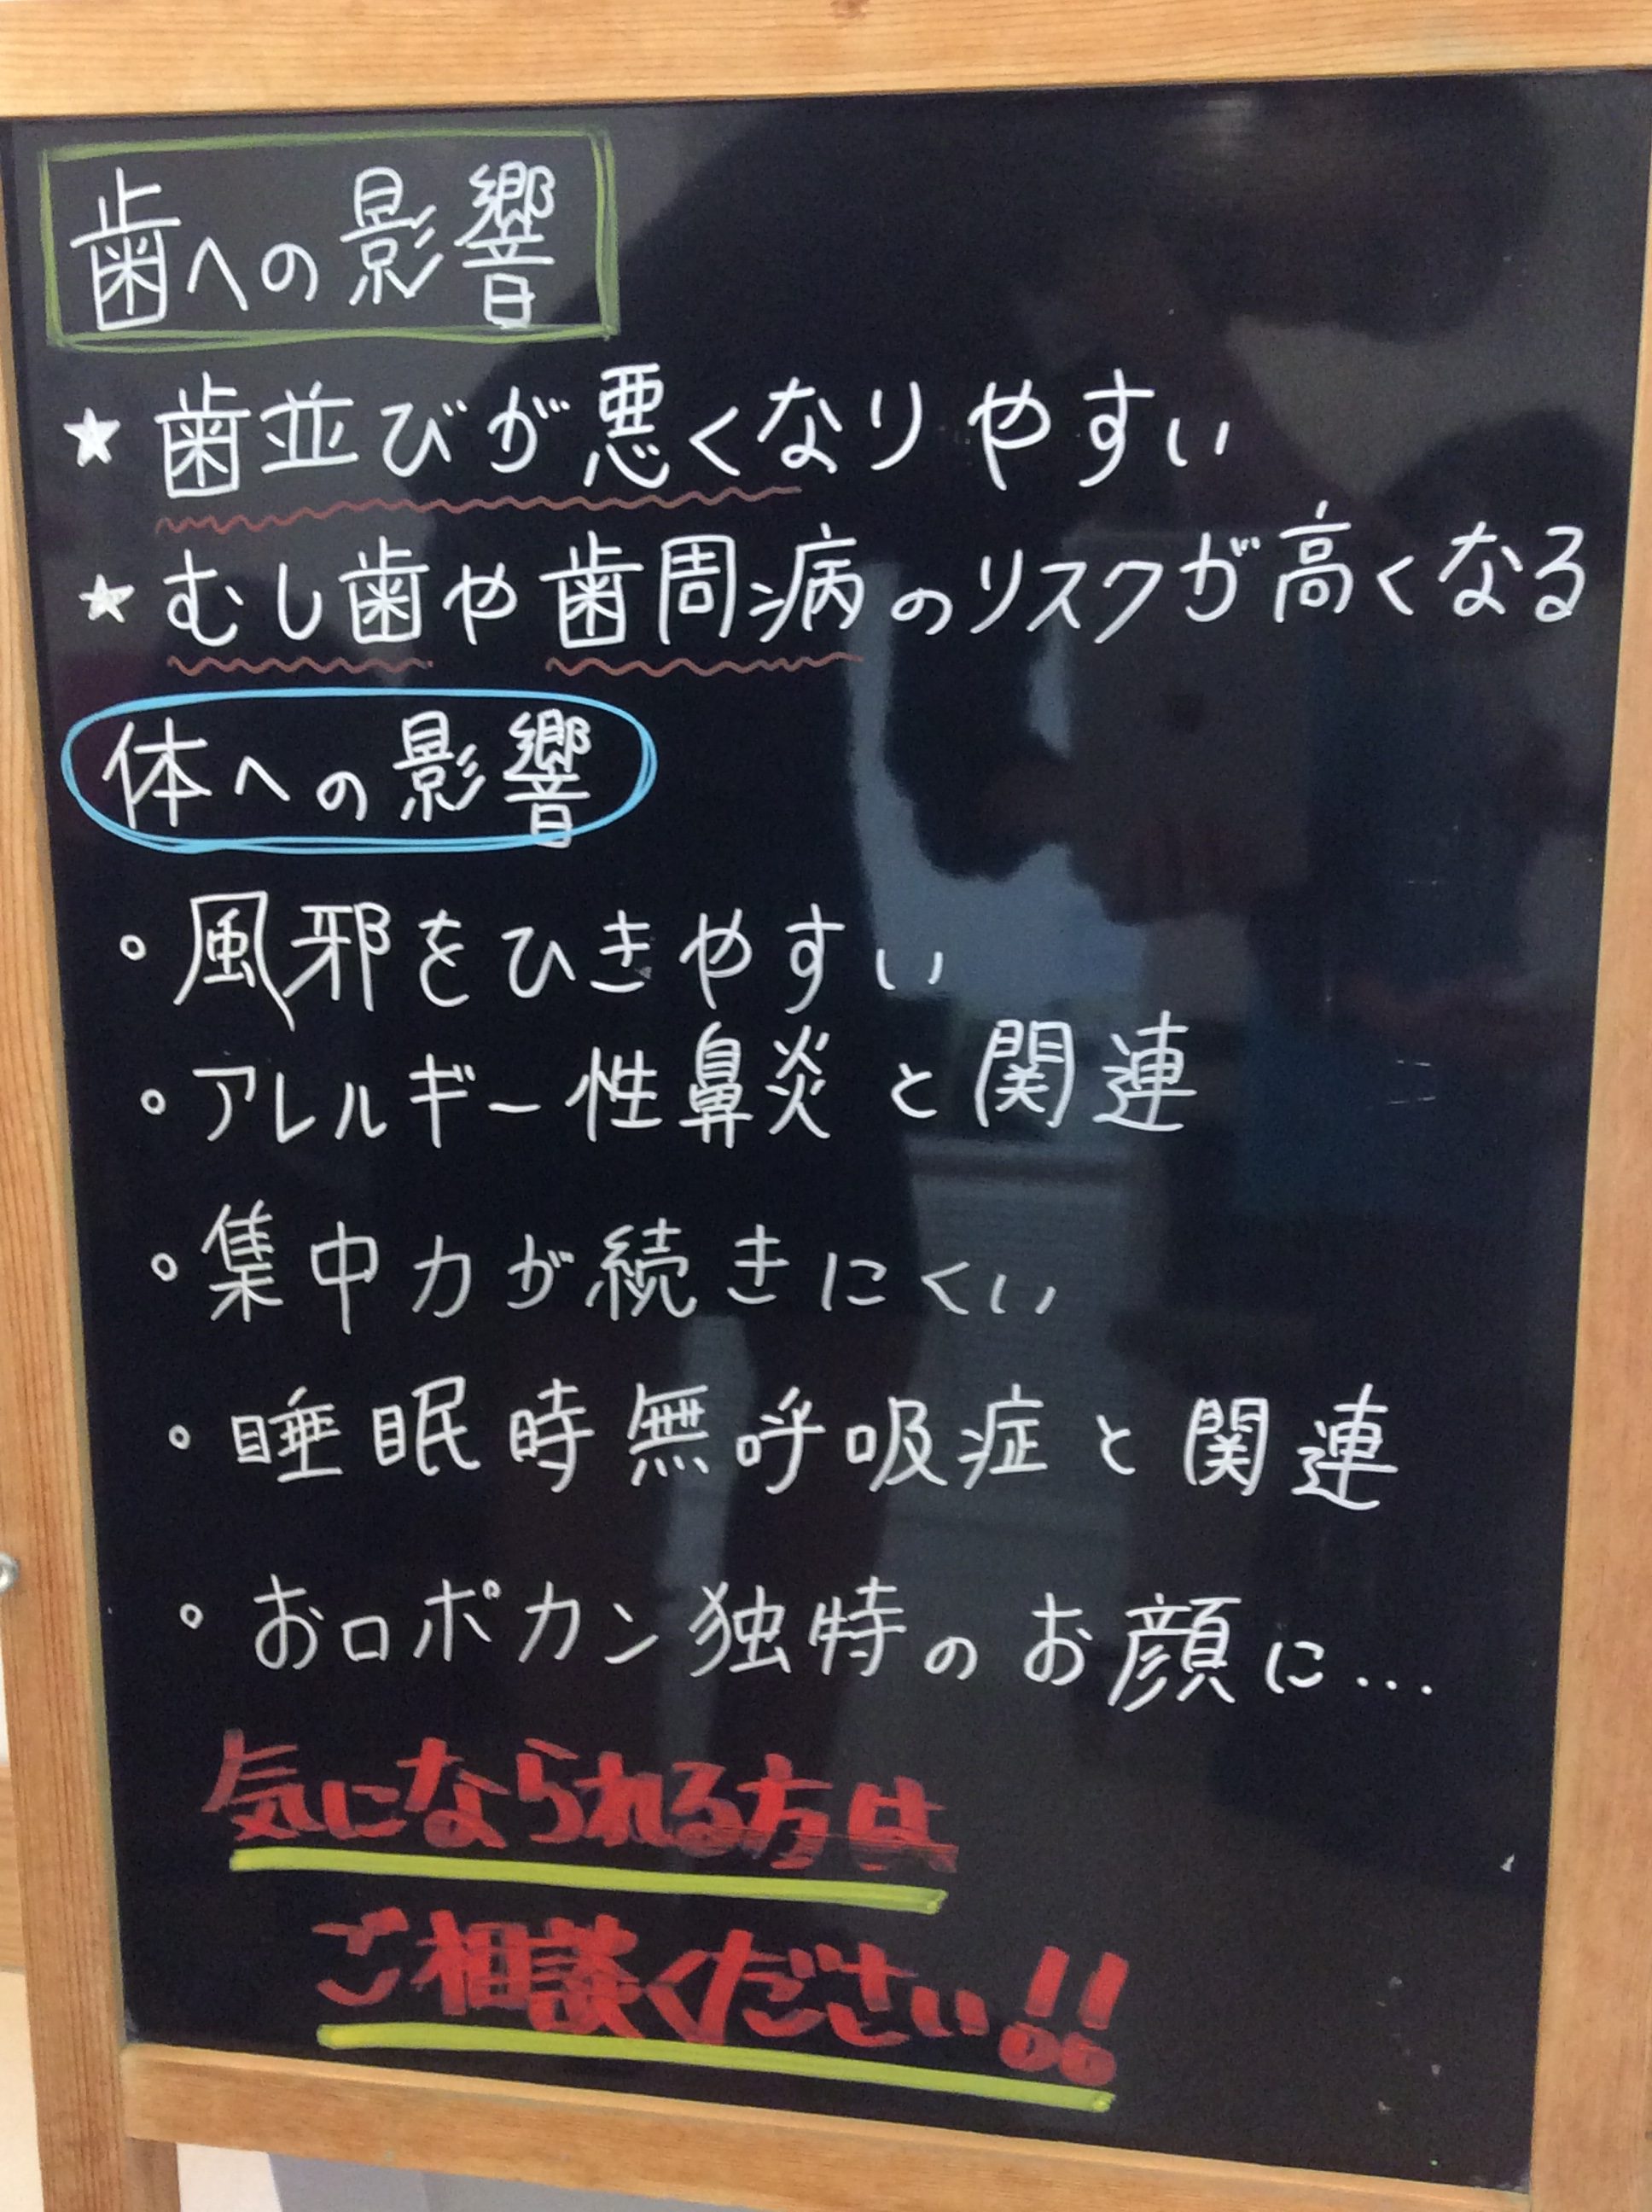 歯への影響
★歯並びが悪くなりやすい
★むし歯や歯周病のリスクが高くなる
体への影響
・風邪をひきやすい
・アレルギー性鼻炎と関連
・集中力が続きにくい
・睡眠時無呼吸症と関連
・お口ポカン独特のお顔に…
気になられる方は
ご相談ください!!